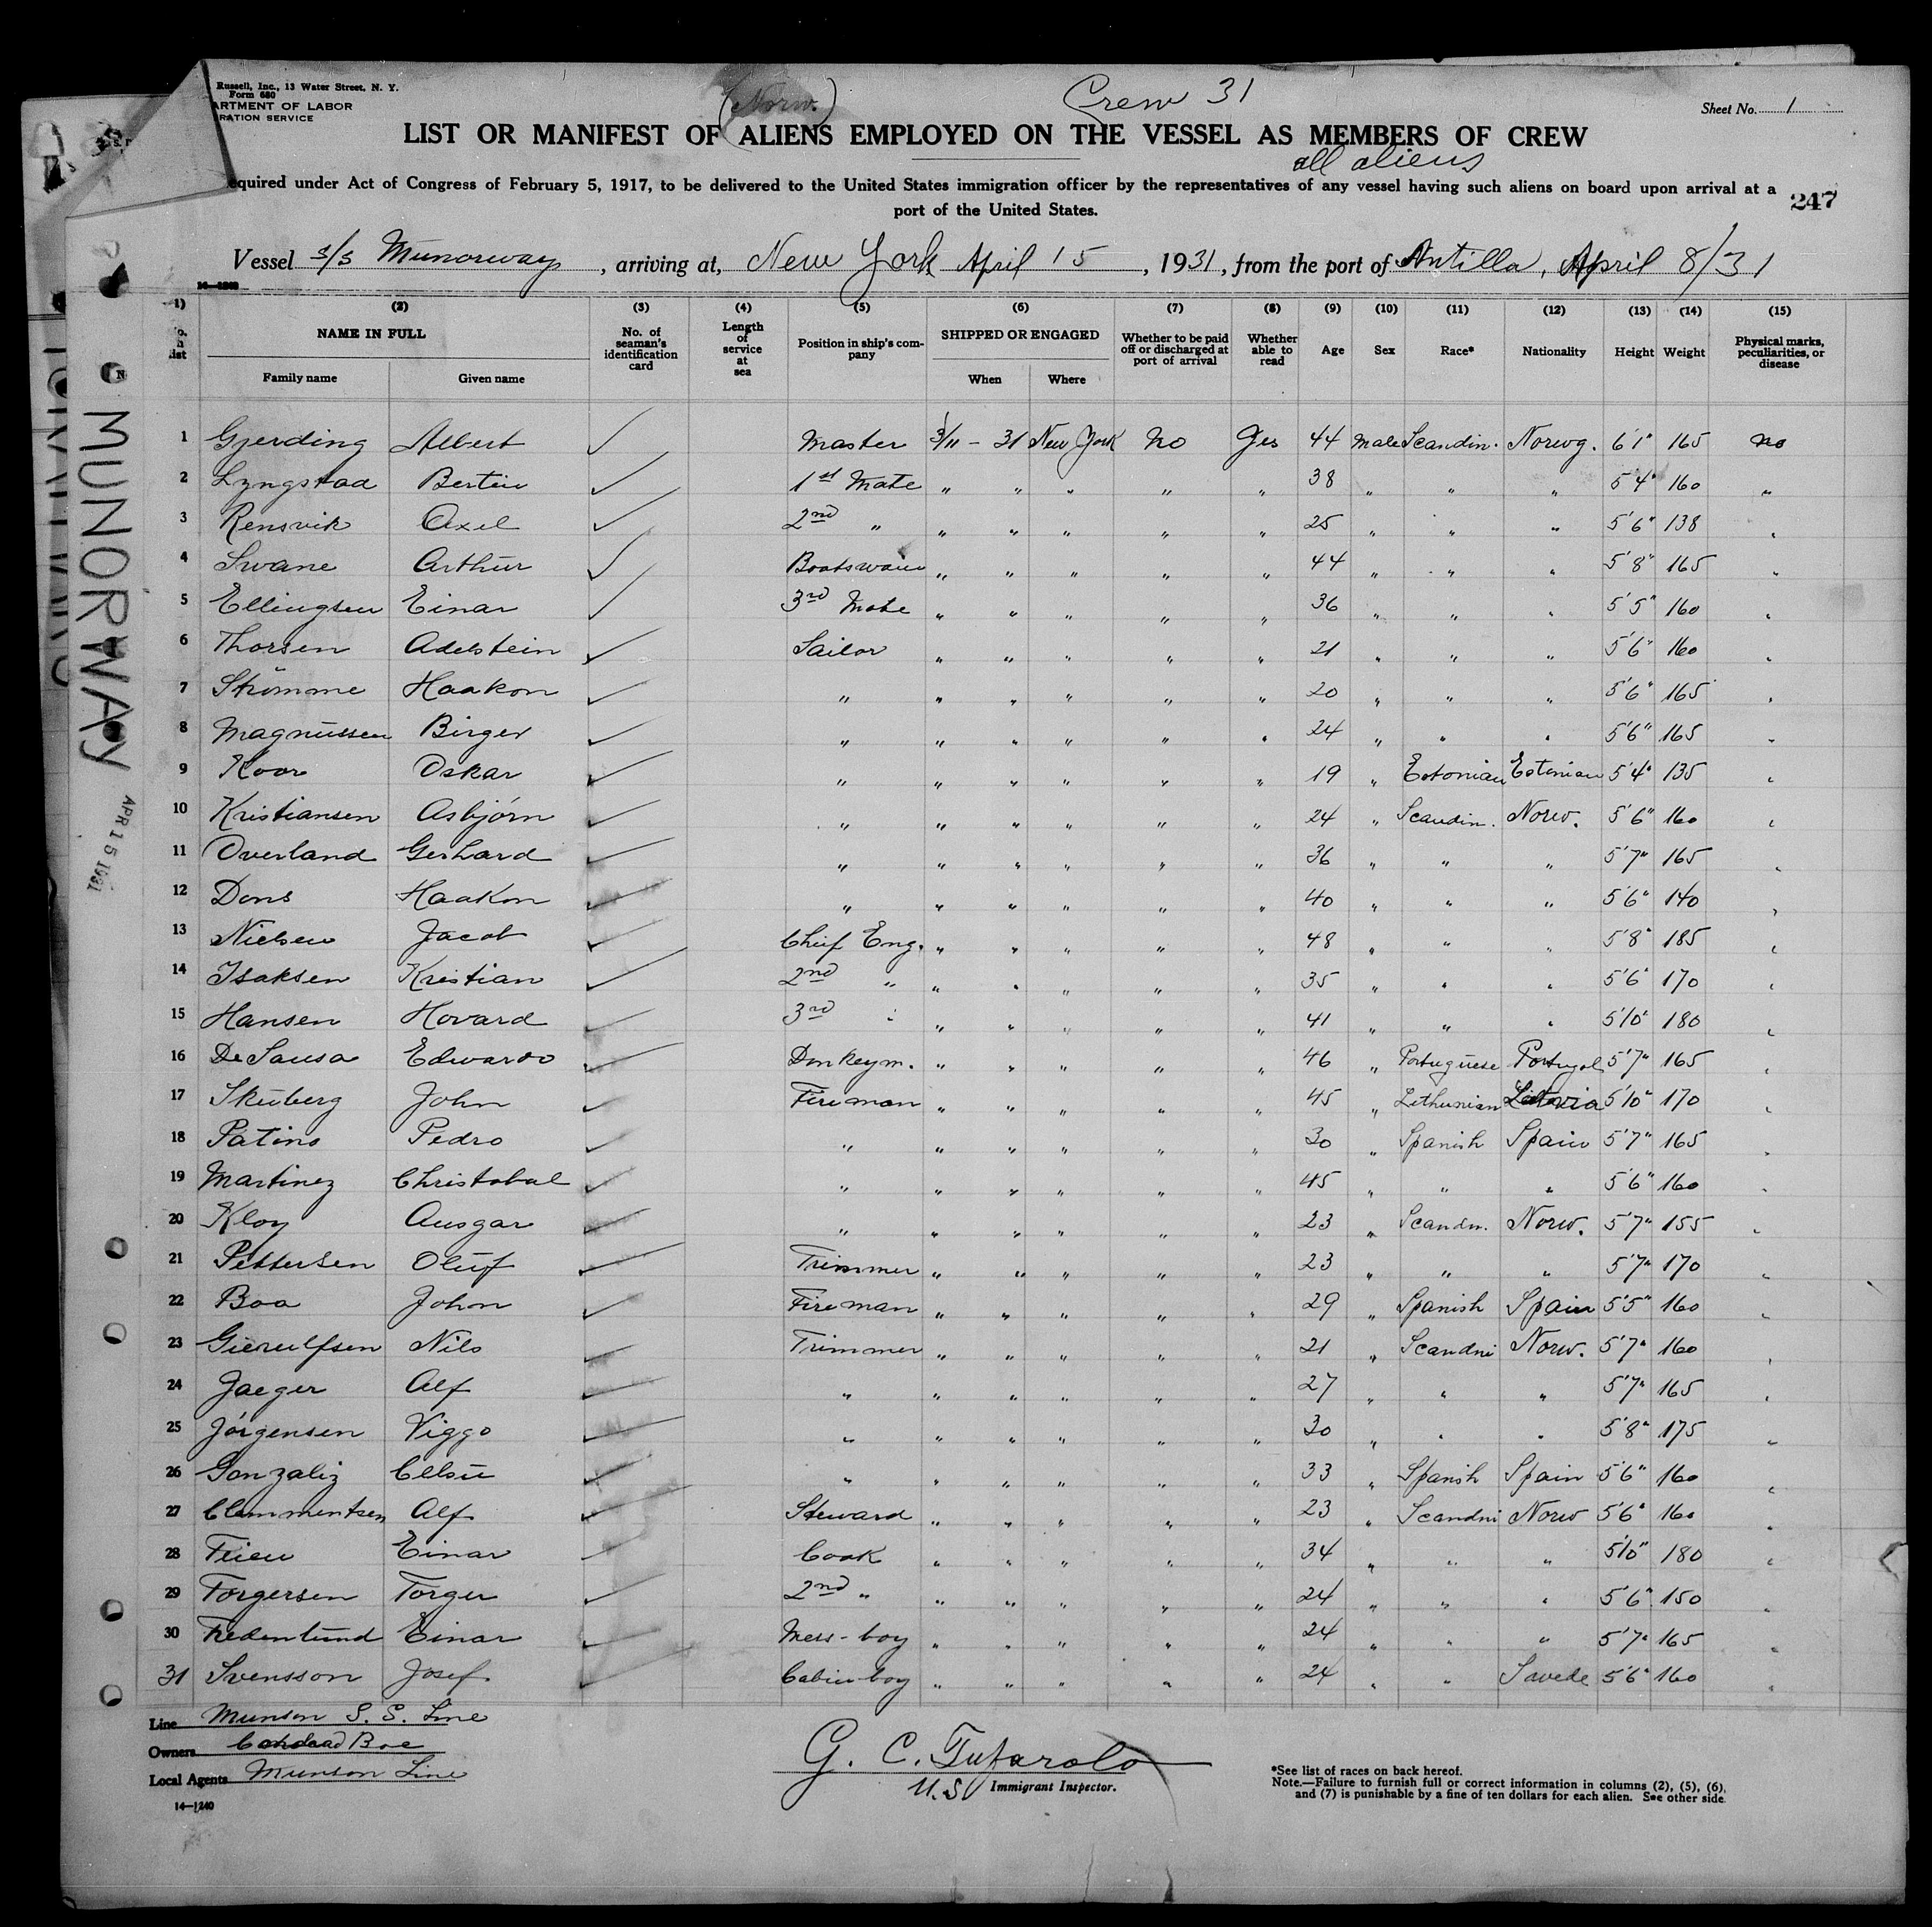 Russell, Inc., 13 Water Street, N. Y.
Form 680
ARTMENT OF LABOR
RATION SERVICE
(Norw.)
Crew 31
Sheet No. 1
LIST OR MANIFEST OF ALIENS EMPLOYED ON THE VESSEL AS MEMBERS OF CREW
all aliens
equired under Act of Congress of February 5, 1917, to be delivered to the United States immigration officer by the representatives of any vessel having such aliens on board upon arrival at a
port of the United States.
247
Vessel s/s Munorway, arriving at, New York April 15, 1931, from the port of Antilla, April 8/31
14-1240
1) (2) (3) (4) (5) (6) (7) (8) (9) (10) (11) (12) (13) (14) (15)
list NAME IN FULL Family name Given name No. of seaman's identification card Length of service at sea Position in ship's company SHIPPED OR ENGAGED When Where Whether to be paid off or discharged at port of arrival Whether able to read Age Sex Race* Nationality Height Weight Physical marks, peculiarities, or disease
1 Gjerding Albert ✓ Master 3/11 - 31 New York No Yes 44 Male Scandin. Norwg. 6'1" 165 no
2 Lyngstad Bertin ✓ 1st Mate " " " " " 38 " " " 5'4" 160 "
3 Rensvik Axel ✓ 2nd " " " " " " 25 " " " 5'6" 138 "
4 Swane Arthur ✓ Boatswain " " " " " 44 " " " 5'8" 165 "
5 Ellingsen Einar ✓ 3rd Mate " " " " " 36 " " " 5'5" 160 "
6 Thorsen Adelstein ✓ Sailor " " " " " 21 " " " 5'6" 160 "
7 Strömme Haakon ✓ " " " " " " 20 " " " 5'6" 165 "
8 Magnussen Birger ✓ " " " " " " 24 " " " 5'6" 165 "
9 Koor Oskar ✓ " " " " " " 19 " Estonian Estonian 5'4" 135 "
10 Kristiansen Asbjórn ✓ " " " " " " 24 " Scandin. Norw. 5'6" 160 "
11 Overland Gerhard ✓ " " " " " " 36 " " " 5'7" 165 "
12 Dons Haakon ✓ " " " " " " 40 " " " 5'6" 140 "
13 Nielsen Jacob ✓ Chief Eng. " " " " " 48 " " " 5'8" 185 "
14 Isaksen Kristian ✓ 2nd " " " " " " 35 " " " 5'6" 170 "
15 Hansen Hovard ✓ 3rd " " " " " " 41 " " " 5'10" 180 "
16 De Sausa Edwardo ✓ Donkeym. " " " " " 46 " Portuguese Portugal 5'7" 165 "
17 Skuberg John ✓ Fireman " " " " " 45 " Lethunian Latvia 5'10" 170 "
18 Patino Pedro ✓ " " " " " " 30 " Spanish Spain 5'7" 165 "
19 Martinez Christobal ✓ " " " " " " 45 " " " 5'6" 160 "
20 Kloy Ansgar ✓ " " " " " " 23 " Scandn. Norw. 5'7" 155 "
21 Pettersen Oluf ✓ Trimmer " " " " " 23 " " " 5'7" 170 "
22 Boa John ✓ Fireman " " " " " 29 " Spanish Spain 5'5" 160 "
23 Gierulfsen Nils ✓ Trimmer " " " " " 21 " Scandni Norw. 5'7" 160 "
24 Jaeger Alf ✓ " " " " " " 27 " " " 5'7" 165 "
25 Jórgensen Viggo ✓ " " " " " " 30 " " " 5'8" 175 "
26 Gonzaliz Celsu ✓ " " " " " " 33 " Spanish Spain 5'6" 160 "
27 Clemmentsen Alf ✓ Steward " " " " " 23 " Scandni Norw 5'6" 160 "
28 Einar ✓ Cook " " " " " 34 " " " 5'10" 180 "
29 Torgersen Torger ✓ 2nd " " " " " " 24 " " " 5'6" 150 "
30 Fredenlund Einar ✓ Mess-boy " " " " " 24 " " " 5'7" 165 "
31 Svensson Josef ✓ Cabin boy " " " " " 24 " " Swede 5'6" 160 "
Line Munson S. S. Line
Owners Boe
Local Agents Munson Line
14-1240
G. C. Tufarolo
U.S. Immigrant Inspector.
*See list of races on back hereof.
Note.—Failure to furnish full or correct information in columns (2), (5), (6),
and (7) is punishable by a fine of ten dollars for each alien. See other side.
MUNORWAY
APR 15 1931